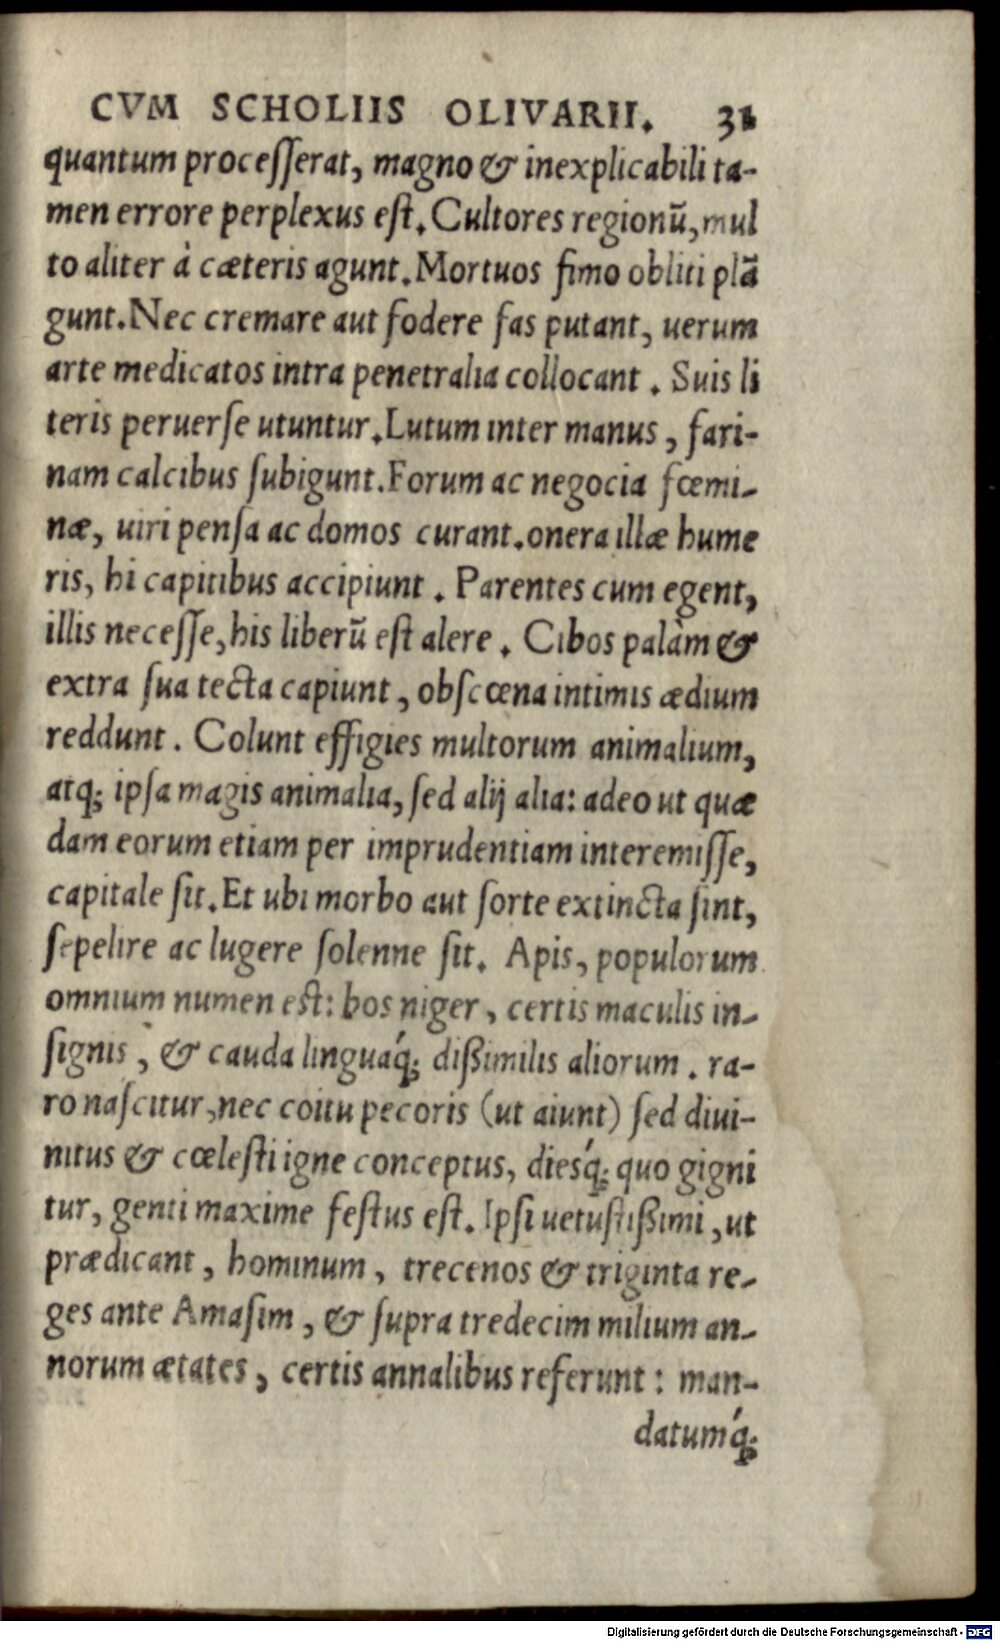 CVM SCHOLIIS OLIVARII. 31
quantum proceſſerat, magno & inexplicabili ta-
men errore perplexus eſt. Cultores regionū, mul
to aliter à cæteris agunt. Mortuos fimo obliti plā
gunt. Nec cremare aut fodere fas putant, uerum
arte medicatos intra penetralia collocant. Suis li
teris peruerſe utuntur. Lutum inter manus, fari-
nam calcibus ſubigunt. Forum ac negocia fœmi-
næ, uiri penſa ac domos curant. onera illæ hume
ris, hi capitibus accipiunt. Parentes cum egent,
illis neceſſe, his liberū eſt alere. Cibos palàm &
extra ſua tecta capiunt, obſcœna intimis ædium
reddunt. Colunt effigies multorum animalium,
atq; ipſa magis animalia, ſed alij alia: adeo ut quæ
dam eorum etiam per imprudentiam interemiſſe,
capitale ſit. Et ubi morbo aut ſorte extincta ſint,
ſepelire ac lugere ſolenne ſit. Apis, populorum
omnium numen eſt: bos niger, certis maculis in-
ſignis, & cauda linguaq́; dißimilis aliorum. ra-
ro naſcitur, nec coitu pecoris (ut aiunt) ſed diui-
nitus & cœleſti igne conceptus, diesq́; quo gigni
tur, genti maxime feſtus eſt. Ipſi uetuſtißimi, ut
prædicant, hominum, trecenos & triginta re-
ges ante Amaſim, & ſupra tredecim milium an-
norum ætates, certis annalibus referunt: man-
datumq́;
Digitalisierung gefördert durch die Deutsche Forschungsgemeinschaft - DFG